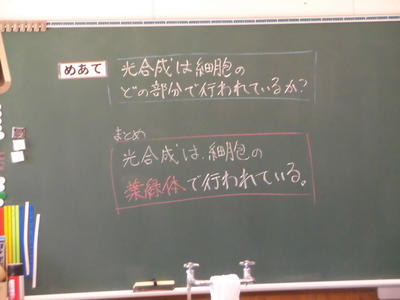 めあて
光合成は細胞の
どの部分で行われているか?
まとめ
光合成は、細胞の
葉緑体で行われている。